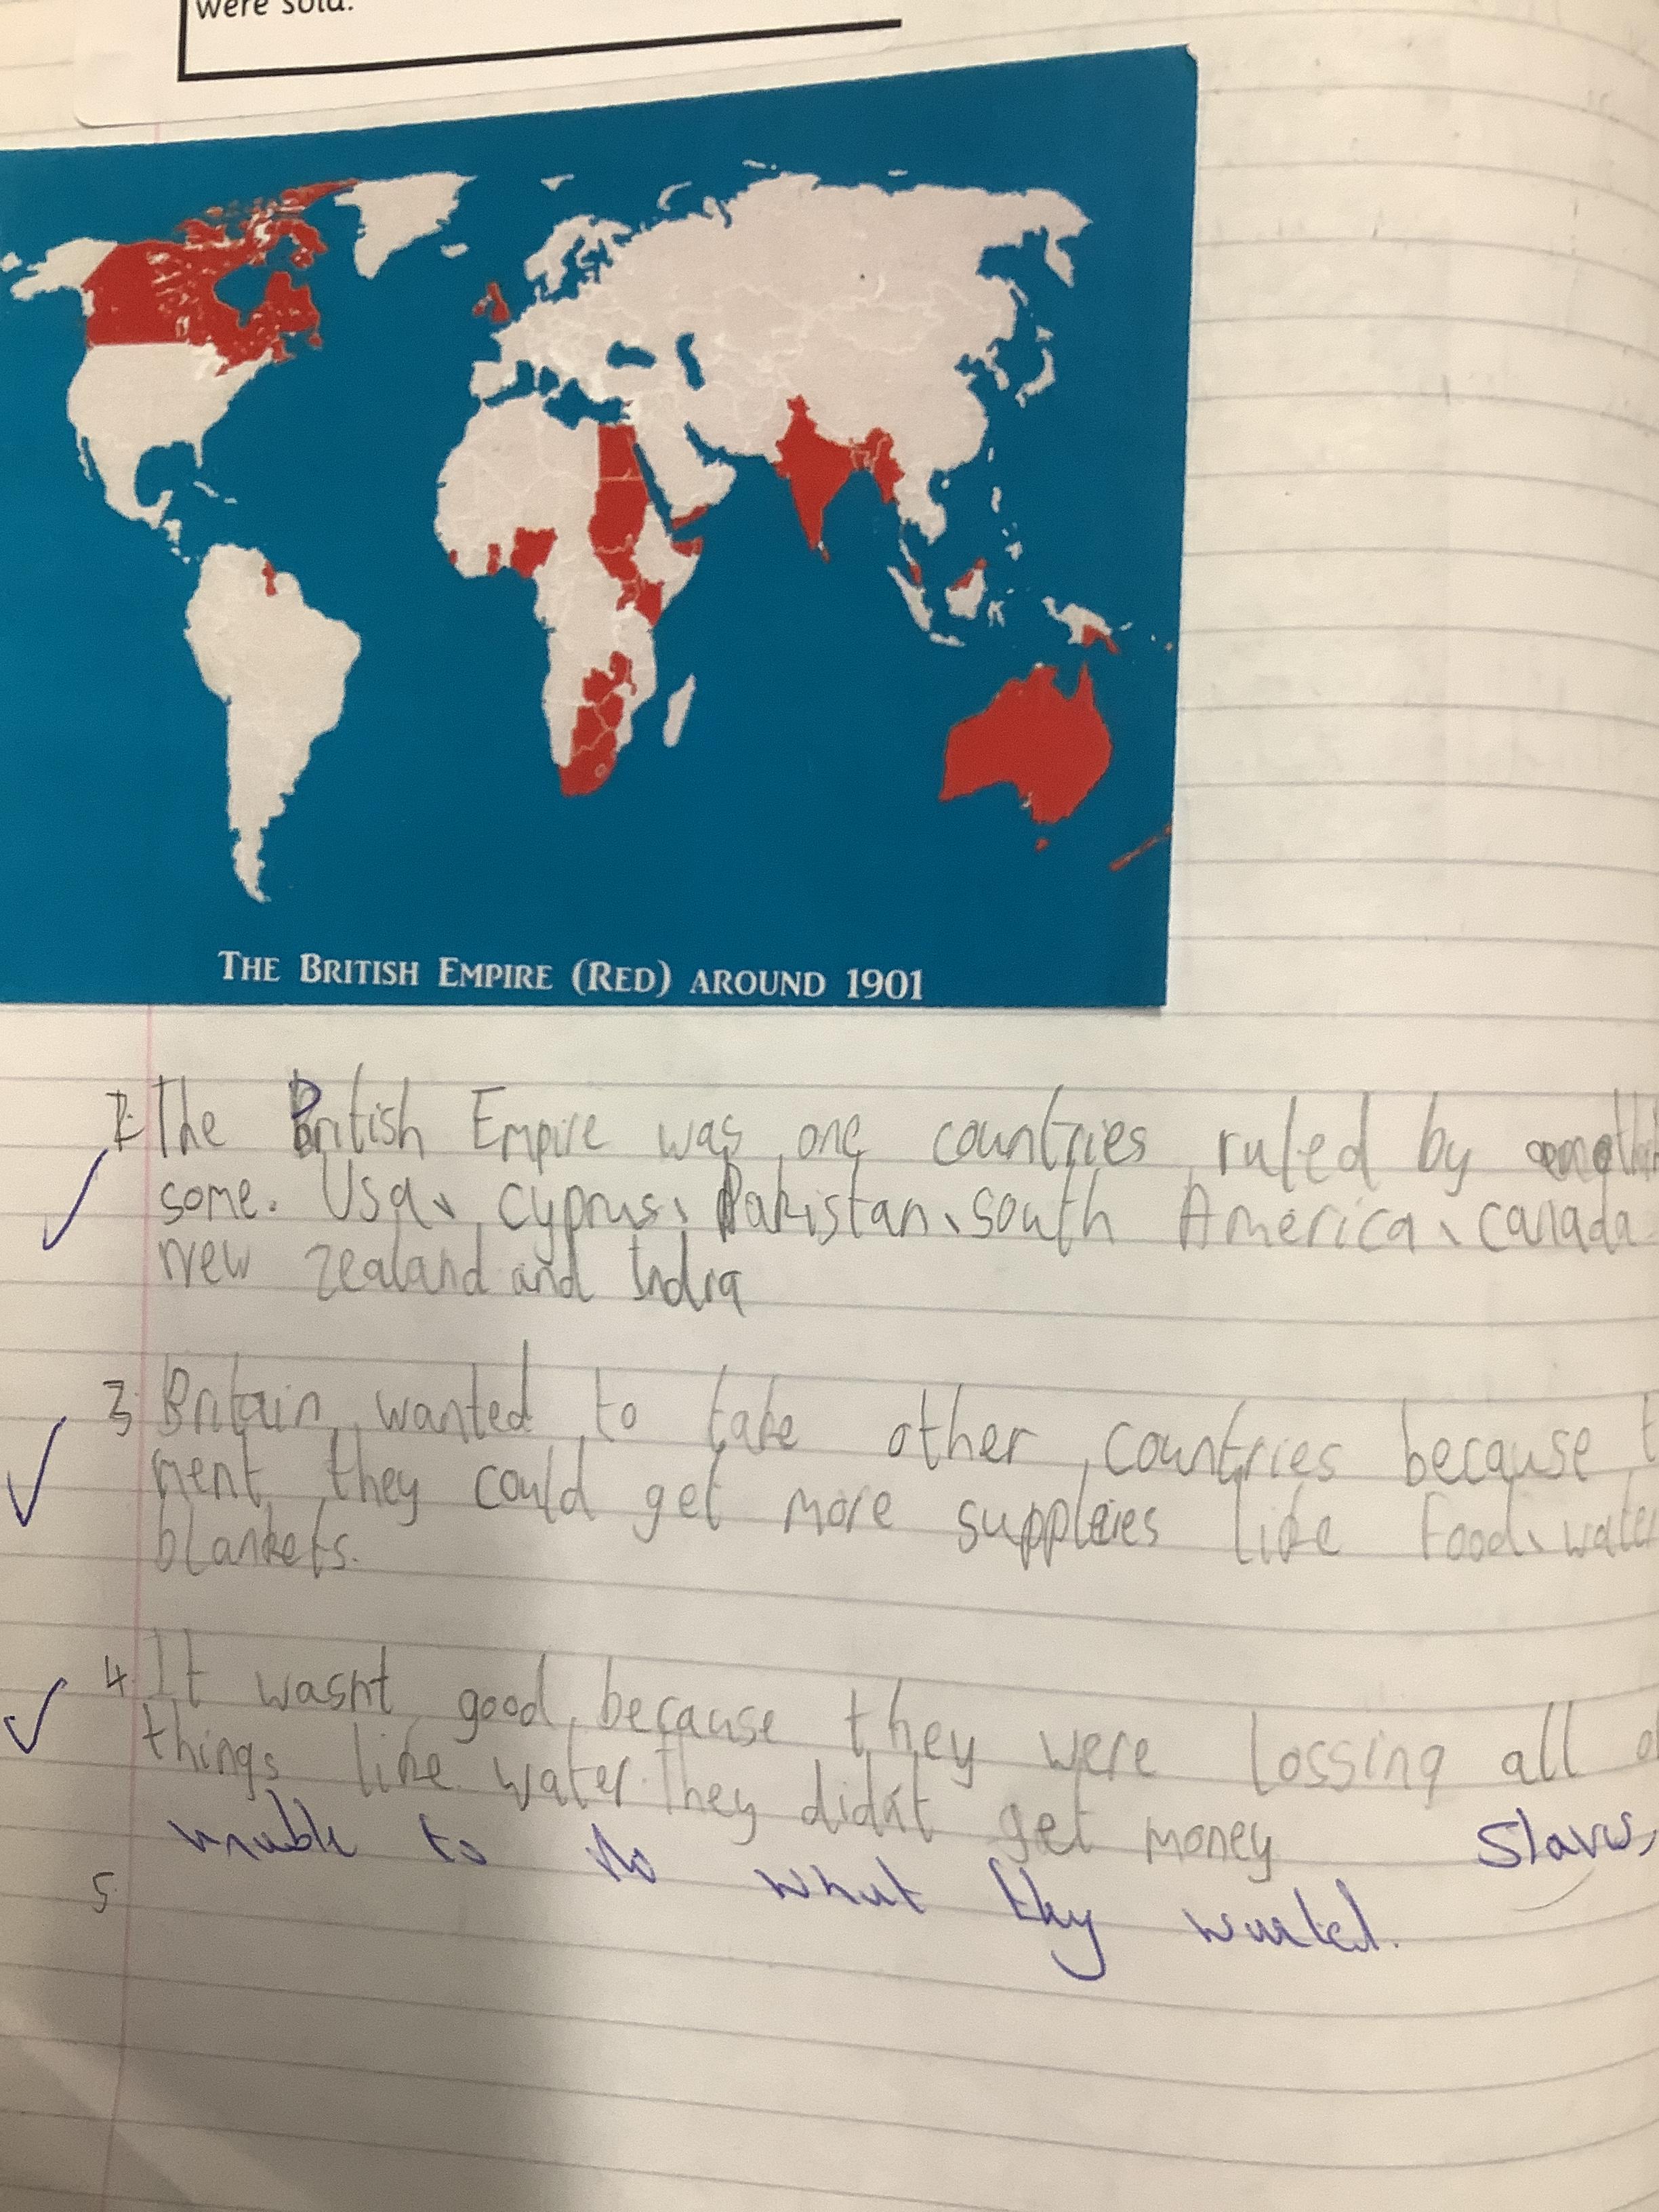 were sold.
THE BRITISH EMPIRE (RED) AROUND 1901
The British Empire was one countries ruled by
some. Usa, Cyprus, Pakistan, South America, canada
New Zealand and India
3. Britain wanted to take other countries because
ment they could get more supplies like Food, water
blankets.
4. It wasn't good because they were lossing all
things like water. They didn't get money Slaves,
unable to do what they wanted.
5.